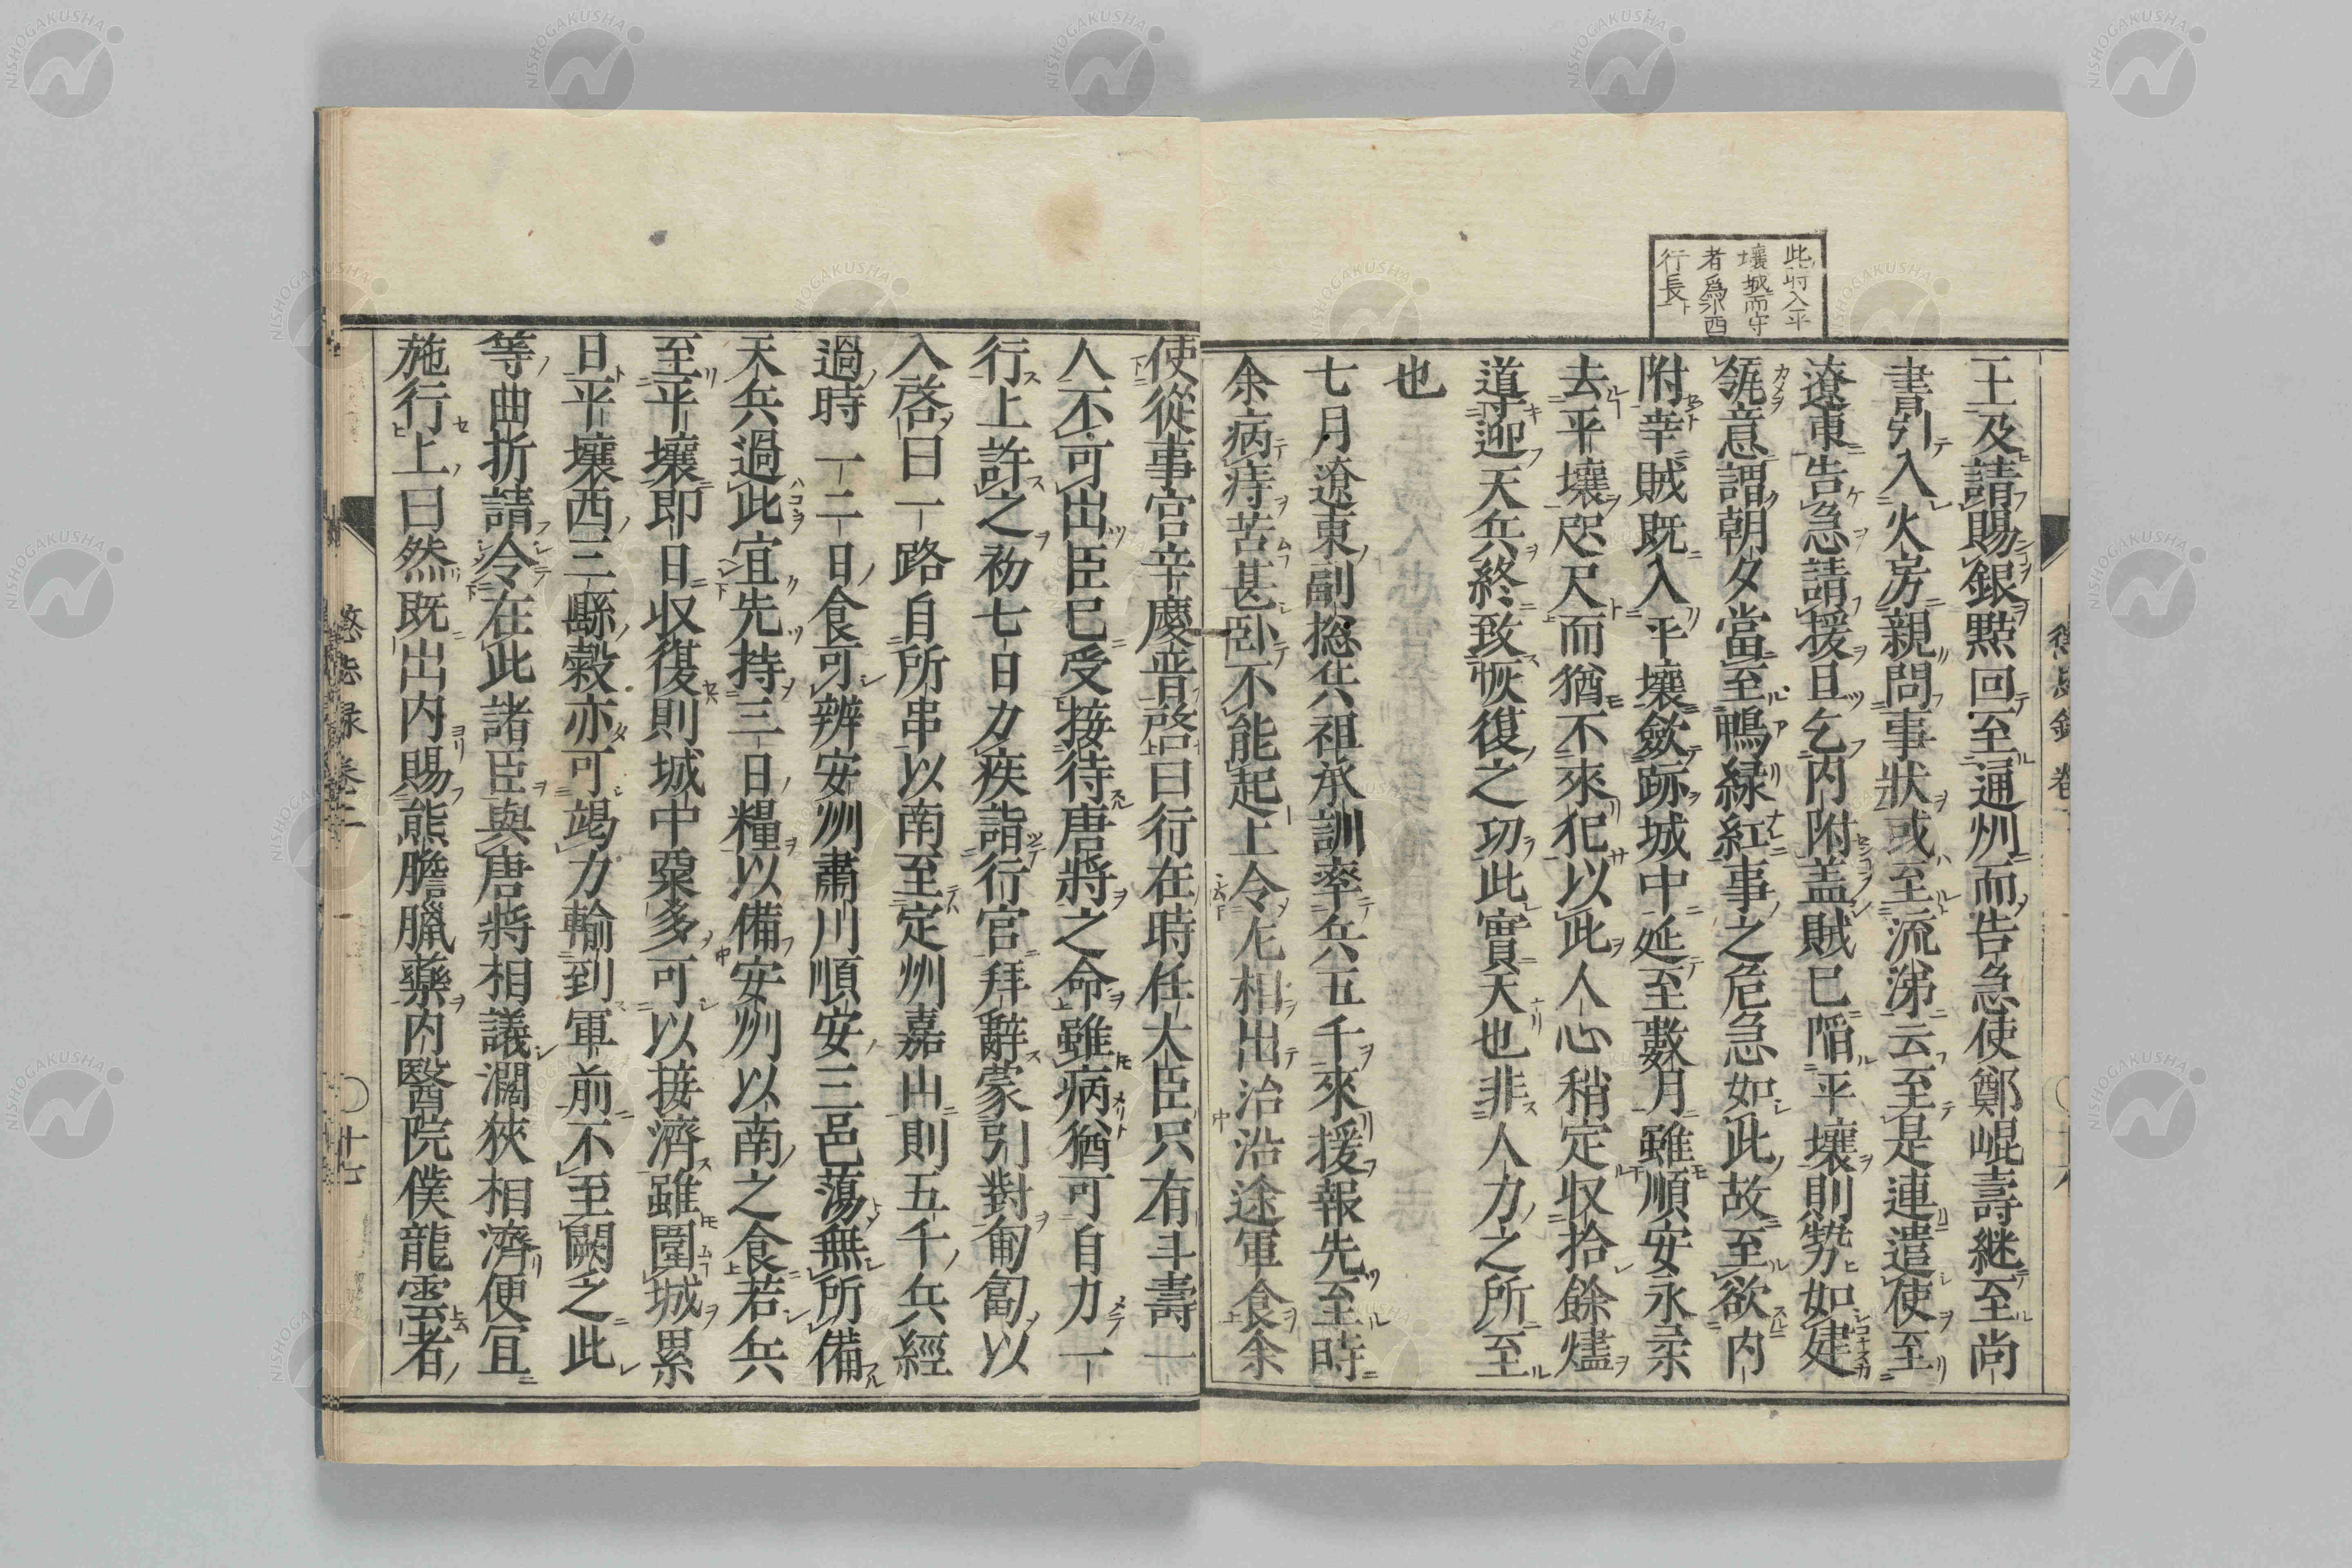 此時入平
壤城而守
者爲小西
行長
王及請賜銀㸃回至通州而告急使鄭崐壽継至尚
書引入火房親問事狀或至流涕云至是連遣使至
遼東告急請援且乞内附盖賊已陷平壤則勢如建
瓴意謂朝夕當至鴨緑紅事之危急如此故至欲内
附幸賊既入平壤斂跡城中延至數月雖順安永柔
去平壤咫尺而猶不來犯以此人心稍定収拾餘燼
導迎天兵終致恢復之功此實天也非人力之所至
也
七月遼東副摠兵祖承訓率兵五千來援報先至時
余病痔苦甚卧不能起上令左相出治沿途軍食余
使從事官辛慶晉啓曰行在時任大臣只有斗壽一
人不可出臣已受接待唐將之命雖病猶可自力一
行上許之初七日力疾詣行官拜辭蒙引對匍匐以
入啓曰一路自所串以南至定州嘉山則五千兵經
過時一二日食可辨安州肅川順安三邑蕩無所備
天兵過此宜先持三日糧以備安州以南之食若兵
至平壤即日収復則城中粟多可以接濟雖圍城累
日平壤西三縣糓亦可竭力輸到軍前不至闕乏此
等曲折請令在此諸臣與唐將相議濶狹相濟便冝
施行上曰然既出内賜熊膽臘藥内醫院僕龍雲者
懲毖録 卷二
十七